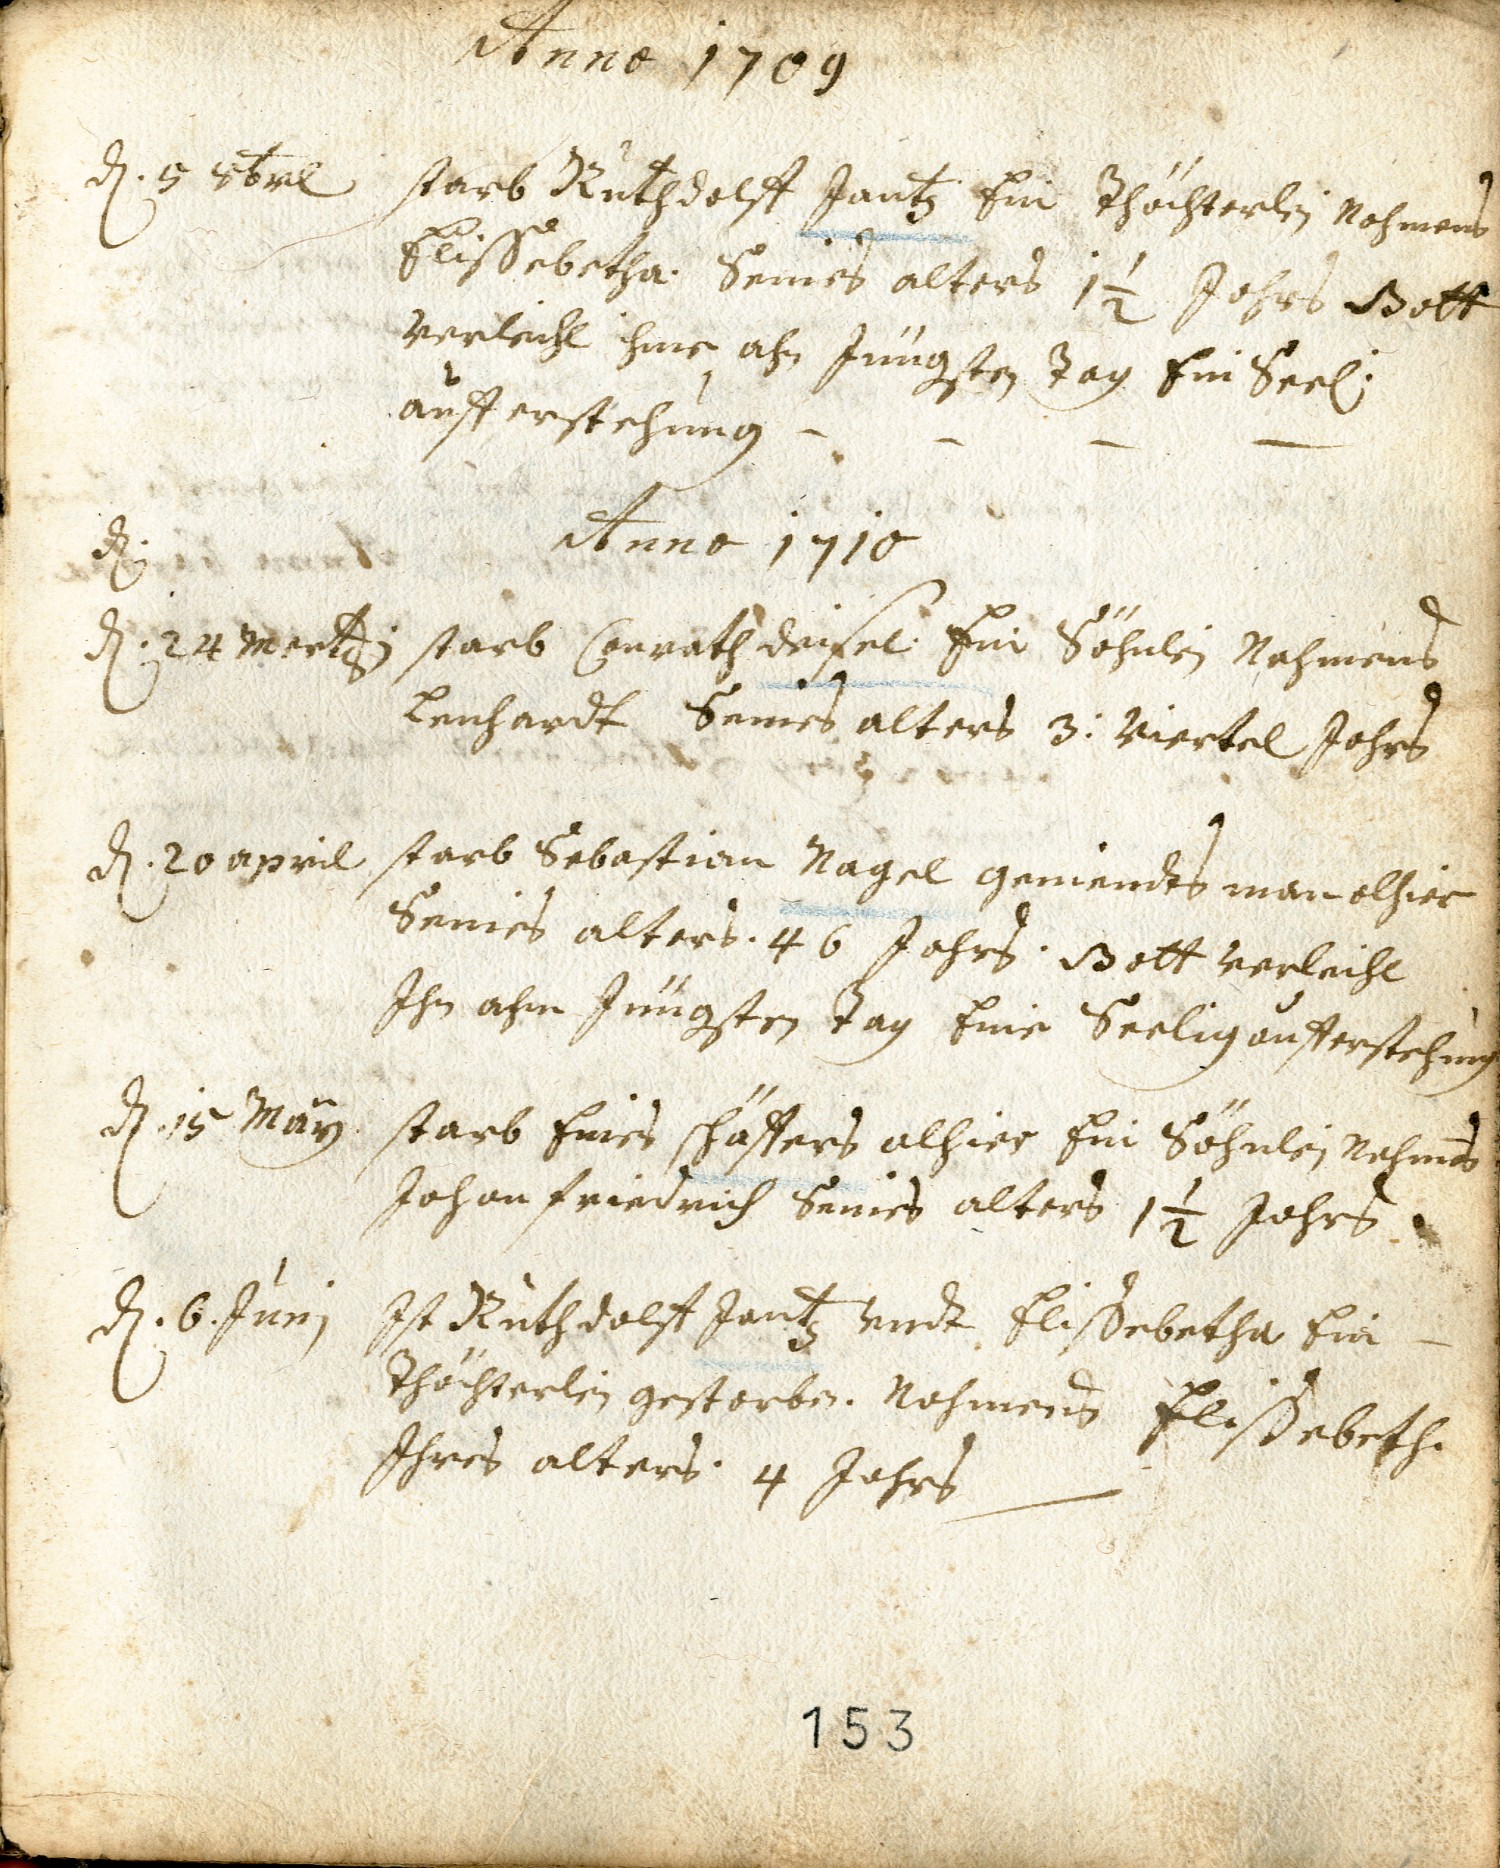 Anno 1709
d. 5 8tbrl starb Ruthdolff Jantz Ein Thöchterlein Nahmens
Elissebetha. Seines alters 1½ Jahrs Gott
Verleihe ihme ahn Jüngsten Tag Ein Seel:
aufferstehung - - - -
Anno 1710
d.
d. 24 Mertz starb Conrath deisel Ein Söhnlein Nahmens
Lenhardt Seines alters 3: Viertel Jahrs
d. 20 april starb Sebastian Nagel gemeindts man alhier
Seines alters. 46 Jahrs. Gott Verleihe
Ihn ahm Jüngsten Tag Eine Seelig aufferstehung
d. 15 May starb Eines schäffers alhier Ein Söhnlein Nahmens
Johan friedrich Seines alters 1½ Jahrs.
d. 6. Junj Ist Ruthdolff Jantz Vndt Elissebetha Ein -
Thöchterlein gestorben. Nahmens Elissebeth.
Ihres alters. 4 Jahrs
153